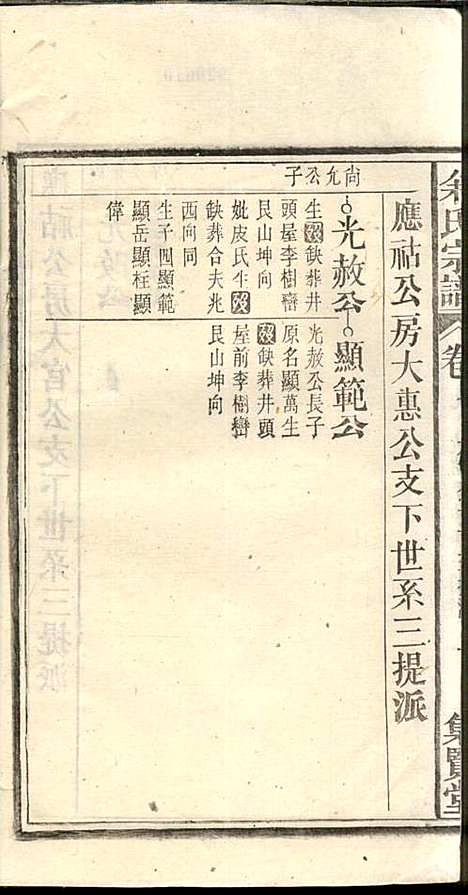 余氏宗譜
卷
集賢堂
應祜公房大惠公支下世系三提派
尚允公子
光赦公
生歿缺葬井
頭屋李樹巒
艮山坤向
妣皮氏生歿
缺葬合夫兆
西向同
生子四顯範
顯岳顯枉顯
偉
顯範公
光赦公長子
原名顯萬生
歿缺葬井頭
屋前李樹巒
艮山坤向